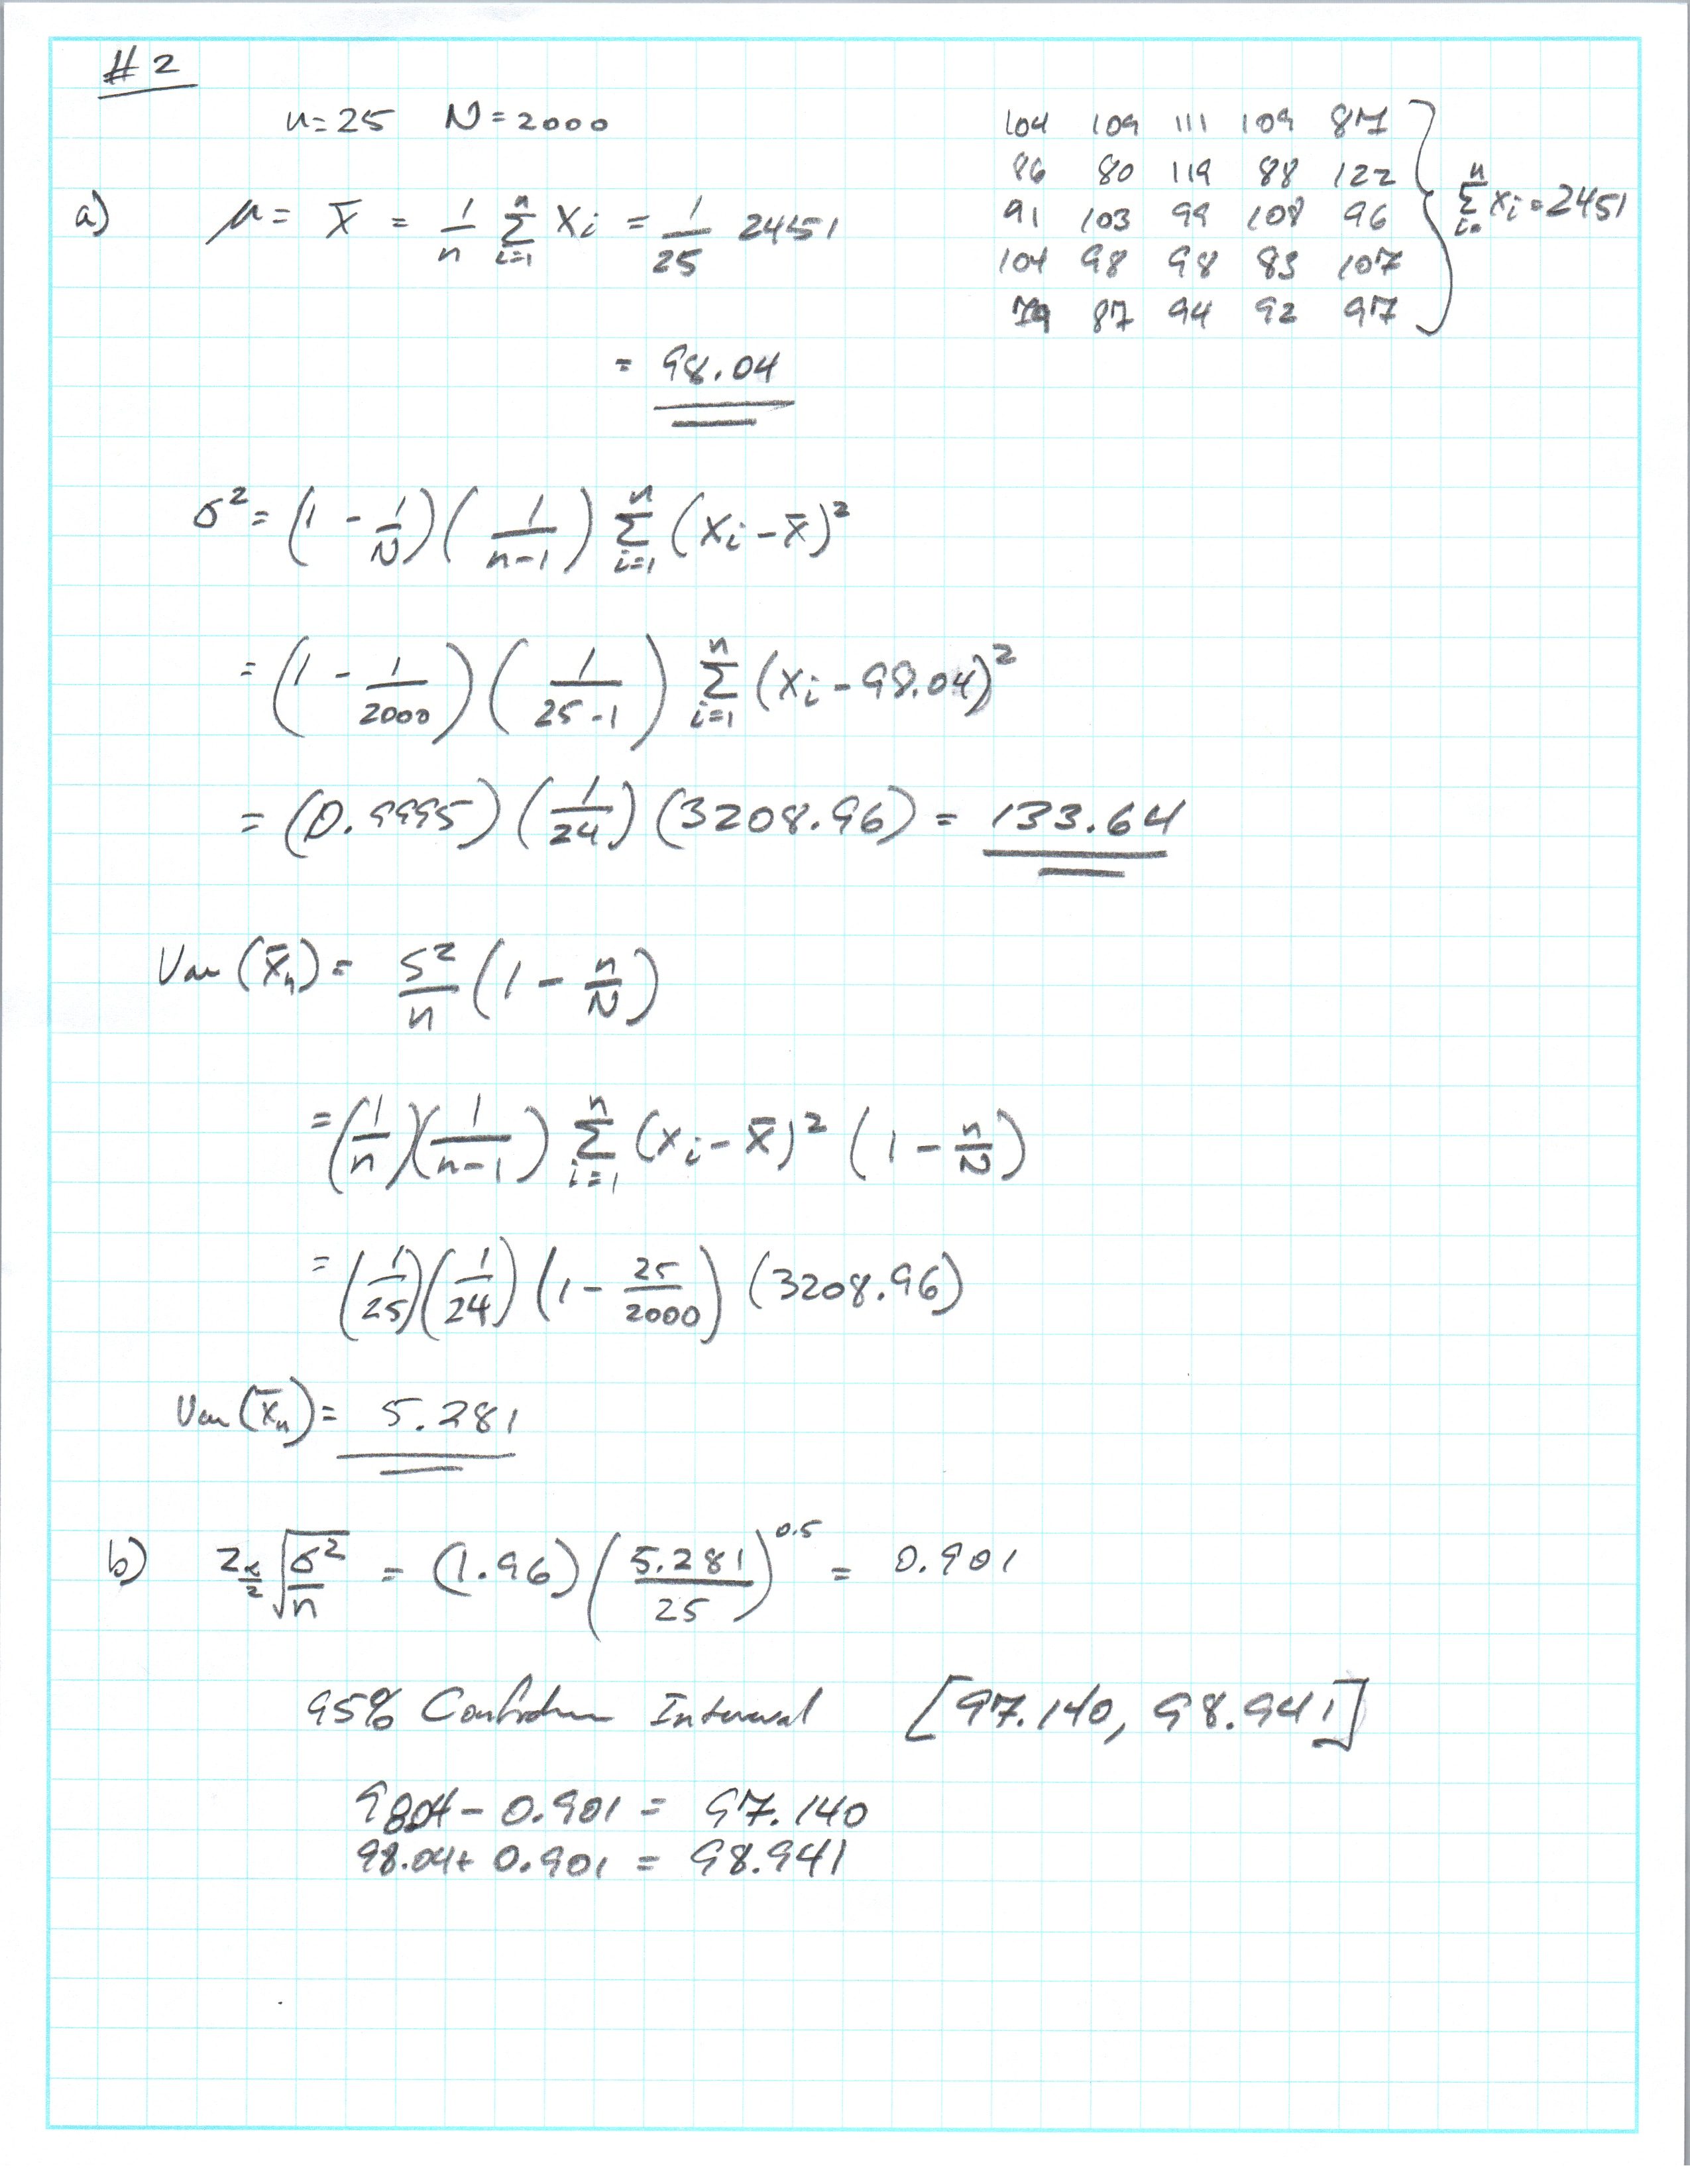 #2
n=25 N=2000
104 109 111 109 87
86 80 119 88 122
91 103 99 108 96
104 98 98 83 107
79 87 94 92 97
} Σ_{i=}^{n} Xi = 2451
a) μ = X̄ = 1/n Σ_{i=1}^{n} Xi = 1/25 2451
= 98.04
σ² = (1 - 1/N)(1/(n-1)) Σ_{i=1}^{n} (Xi - x̄)²
= (1 - 1/2000)(1/(25-1)) Σ_{i=1}^{n} (Xi - 98.04)²
= (0.9995)(1/24)(3208.96) = 133.64
Var(X̄n) = S²/n (1 - n/N)
= (1/n)(1/(n-1)) Σ_{i=1}^{n} (xi - x̄)² (1 - n/N)
= (1/25)(1/24)(1 - 25/2000)(3208.96)
Var(X̄n) = 5.281
b) Z_{α/2} √(σ²/n) = (1.96)(5.281/25)^{0.5} = 0.901
95% Confidence Interval [97.140, 98.941]
9804 - 0.901 = 97.140
98.04 + 0.901 = 98.941